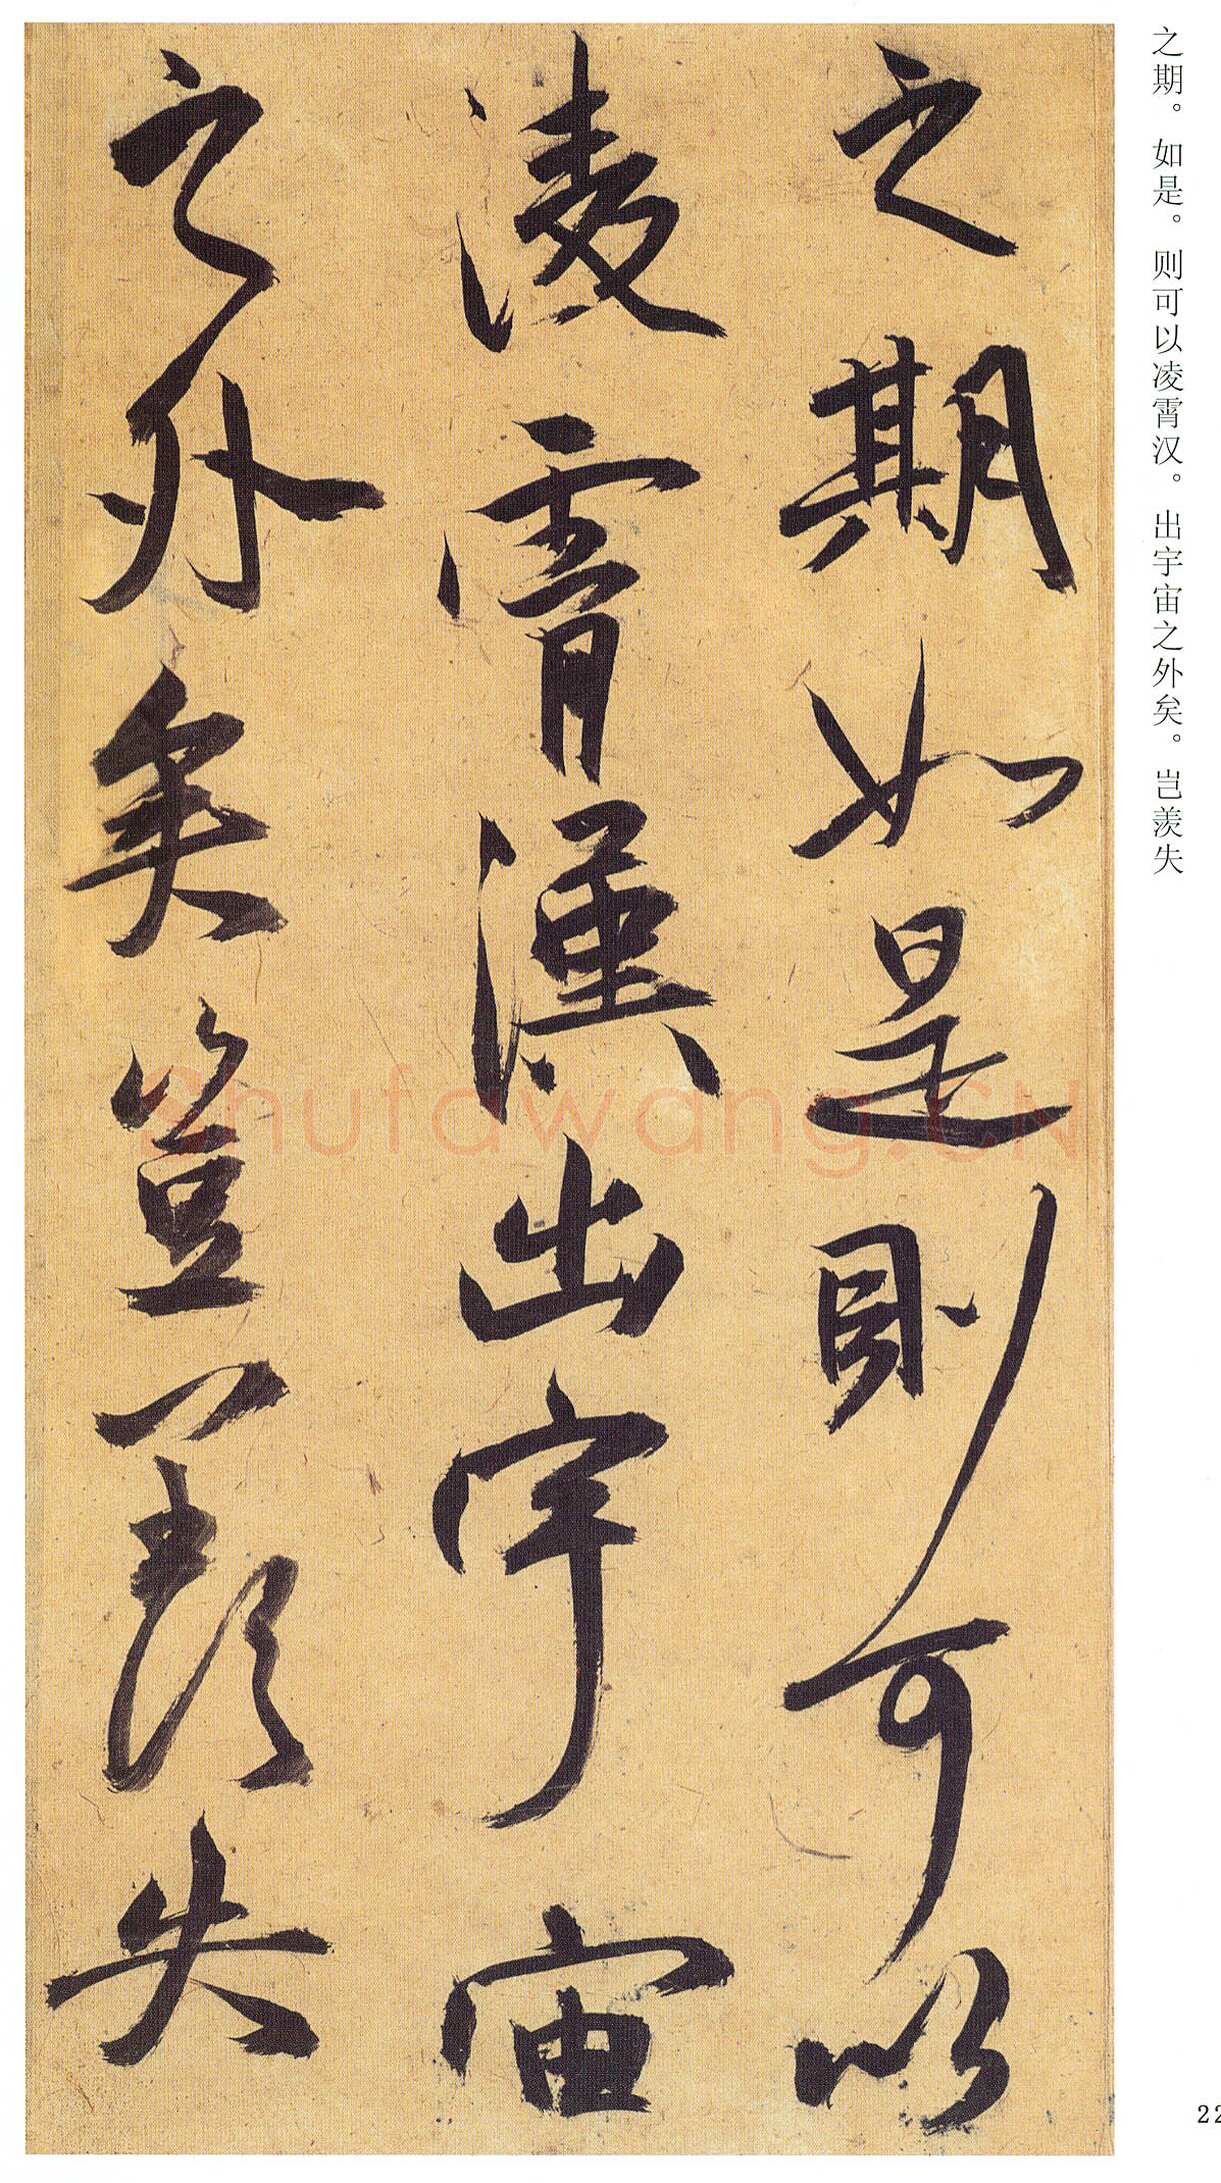 之期。如是。则可以凌霄汉。出宇宙之外矣。岂羡失
之期如是則可以
凌霄漢出宇宙
之外矣豈羡失
Shufawang.CN
22